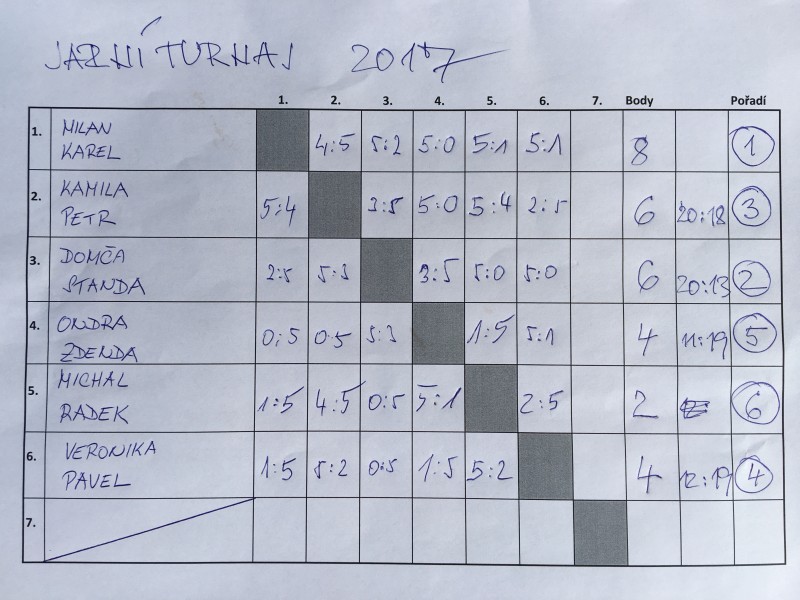 JARNÍ TURNAJ 2017
1. 2. 3. 4. 5. 6. 7. Body Pořadí
1. MILAN KAREL 4:5 5:2 5:0 5:1 5:1 8 1
2. KAMILA PETR 5:4 3:5 5:0 5:4 2:5 6 20:18 3
3. DOMČA STANDA 2:5 5:3 3:5 5:0 5:0 6 20:13 2
4. ONDRA ZDENDA 0:5 0:5 5:3 1:5 5:1 4 11:19 5
5. MICHAL RADEK 1:5 4:5 0:5 5:1 2:5 2 6
6. VERONIKA PAVEL 1:5 5:2 0:5 1:5 5:2 4 12:19 4
7.